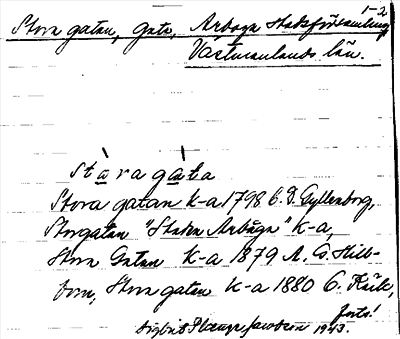 1-2
Stora gatan, gata, Arboga stadsförsamling
Västmanlands län.
stàragàta
Stora gatan k-a 1798 C. D. Gyllenborg,
Storgatan "Staden Arboga" k-a,
Stora Gatan k-a 1879 A. G. Hill-
bom, Stora gatan k-a 1880 C. Räik,
forts!
1943.